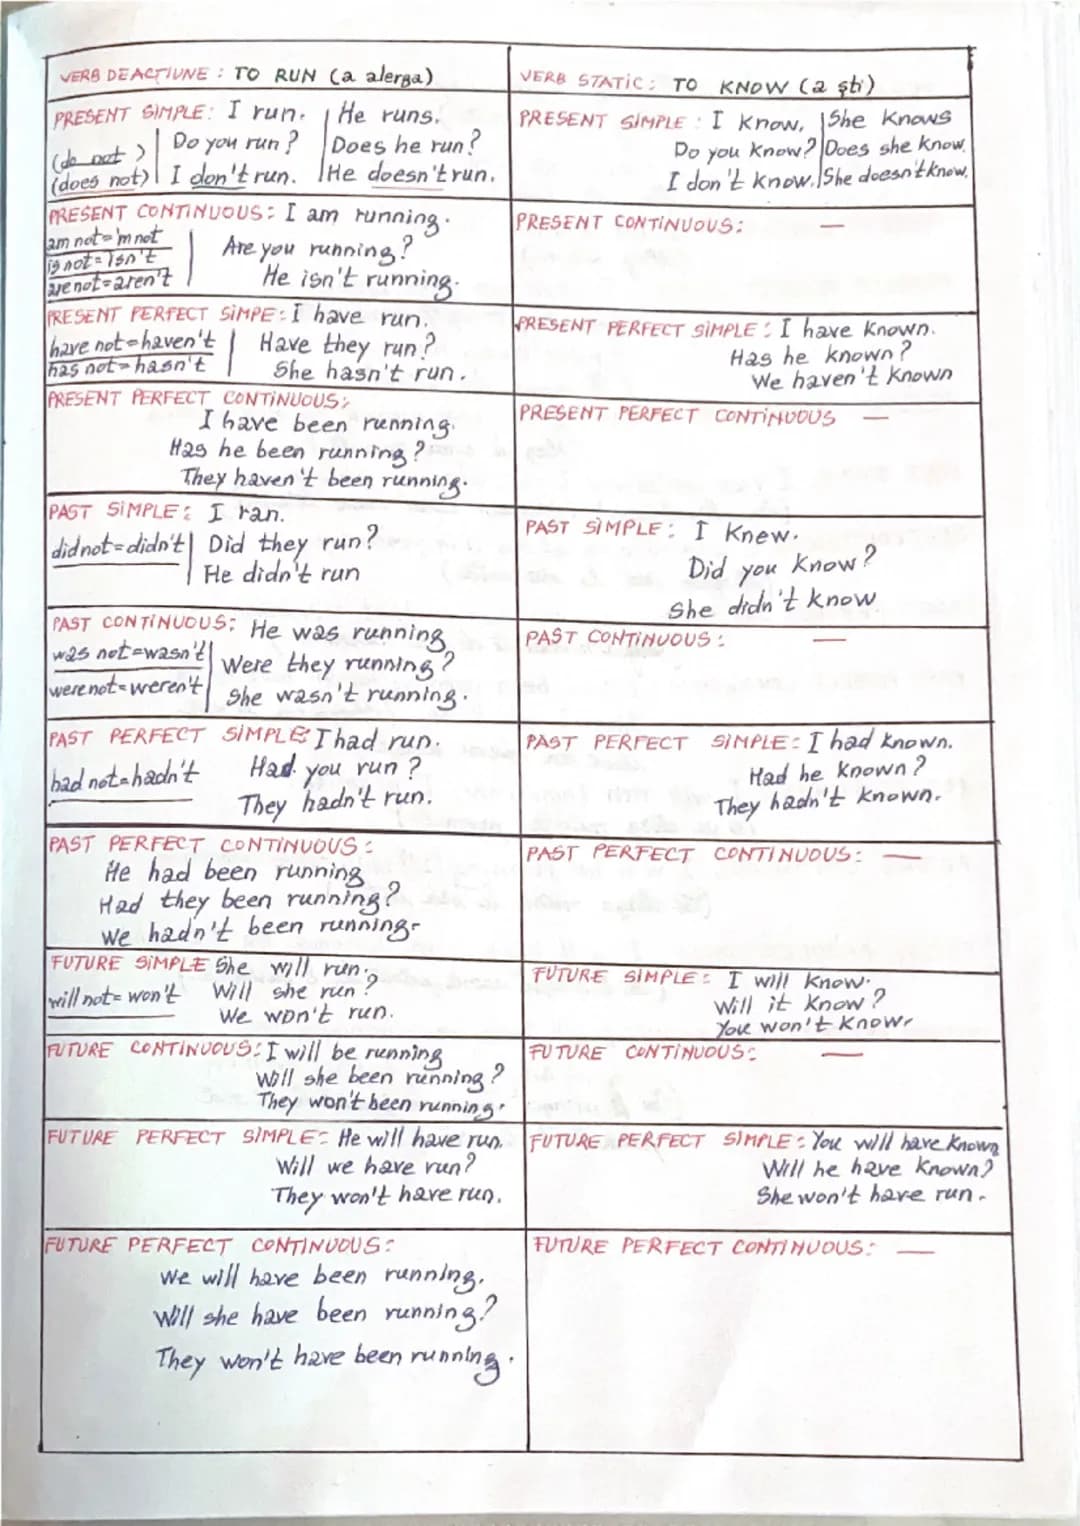 VERB DE ACȚIUNE : TO RUN (a alerga)
PRESENT SIMPLE: I run. | He runs.
Do you run? | Does he run?
(do not)
(does not) | I don't run. | He doesn't run.
PRESENT CONTINUOUS: I am running.
am not = 'm not
is not = isn't | Are you running?
are not = aren't | He isn't running.
PRESENT PERFECT SIMPE: I have run.
have not = haven't | Have they run?
has not = hasn't | She hasn't run.
PRESENT PERFECT CONTINUOUS:
I have been running.
Has he been running?
They haven't been running.
PAST SIMPLE: I ran.
did not = didn't | Did they run?
He didn't run
PAST CONTINUOUS: He was running
was not = wasn't | Were they running?
were not = weren't | She wasn't running.
PAST PERFECT SIMPLE: I had run.
Had you run?
had not = hadn't
They hadn't run.
PAST PERFECT CONTINUOUS:
He had been running
Had they been running?
We hadn't been running.
FUTURE SIMPLE She will run.
will not = won't Will she run?
We won't run.
FUTURE CONTINUOUS: I will be running
Will she been running?
They won't been running.
FUTURE PERFECT SIMPLE: He will have run.
Will we have run?
They won't have run.
FUTURE PERFECT CONTINUOUS:
We will have been running.
Will she have been running?
They won't have been running.
VERB STATIC: TO KNOW (a ști)
PRESENT SIMPLE : I know. | She knows
Do you know? | Does she know.
I don't know. | She doesn't know.
PRESENT CONTINUOUS: —
PRESENT PERFECT SIMPLE : I have known.
Has he known?
We haven't known
PRESENT PERFECT CONTINUOUS —
PAST SIMPLE: I knew.
Did you know?
She didn't know
PAST CONTINUOUS: —
PAST PERFECT SIMPLE: I had known.
Had he known?
They hadn't known.
PAST PERFECT CONTINUOUS: —
FUTURE SIMPLE: I will know.
Will it know?
You won't know.
FUTURE CONTINUOUS: —
FUTURE PERFECT SIMPLE: You will have known
Will he have known?
She won't have run.
FUTURE PERFECT CONTINUOUS: —